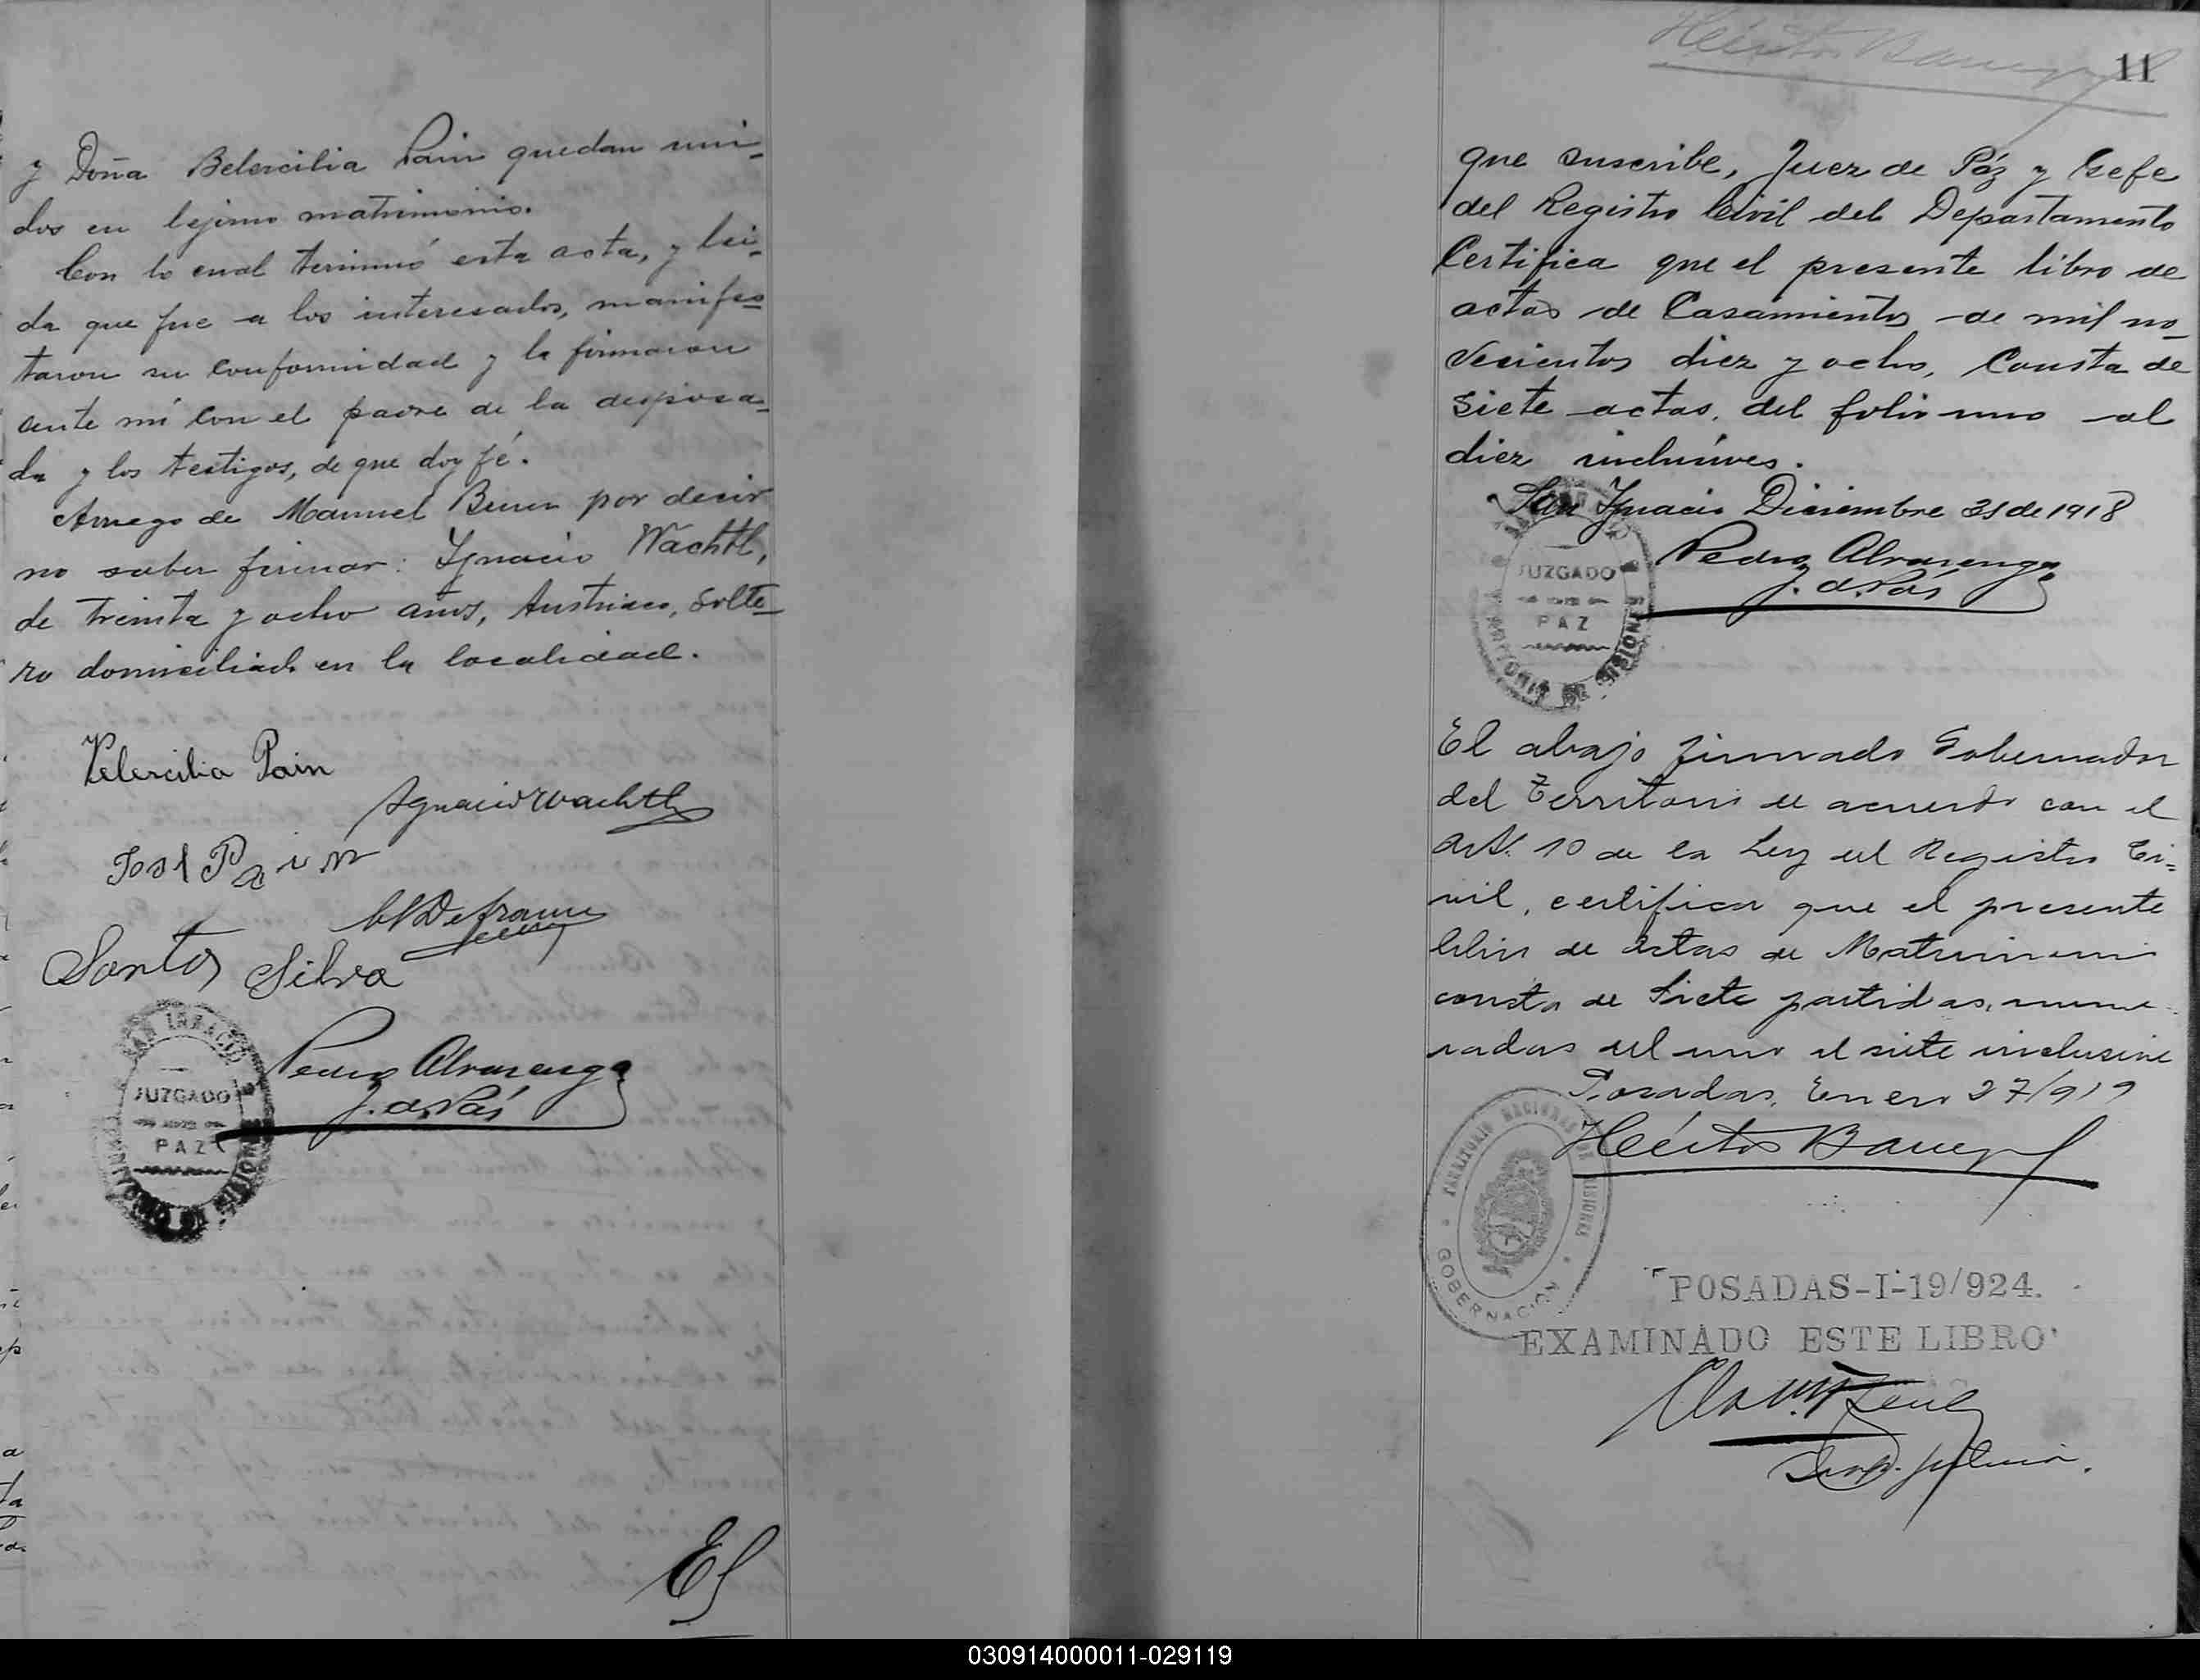 y Doña Belercilia Pain quedan uni-
dos en lejimo matrimonio.
Con lo cual terminó esta acta, y lei-
da que fue a los interesados, manifes-
taron su conformidad y la firmaron
ante mi con el padre de la desposa-
da y los testigos, de que doy fé.
Arruego de Manuel por decir
no saber firmar: Ygnacio Wachtl,
de treinta y ocho años, Austriaco, solte-
ro domiciliado en la localidad.
Velercilia Pain
Ygnacio Wachtl
José Pain
Santos Silva
SAN IGNACIO
JUZGADO
PAZ
TERRITORIO DE MISIONES
Pedro Alvarenga
J. de Pas
El
Héctor Barreyro
11
que suscribe, Juez de Páz y Gefe
del Registro Civil del Departamento
Certifica que el presente libro de
actas de Casamientos de mil no-
vecientos diez y ocho, Consta de
siete actas, del folio uno al
diez inclusives.
San Ygnacio Diciembre 31 de 1918
Pedro Alvarenga
J. de Pas
JUZGADO
PAZ
TERRITORIO DE MISIONES
El abajo firmado Gobernador
del Territorio de acuerdo con el
Art. 10 de la Ley del Registro Ci-
vil, certifica que el presente
libro de actas de Matrimonio
consta de siete partidas, nume-
radas del uno al siete inclusive
Posadas, Enero 27/919
Héctor Barreyro
TERRITORIO NACIONAL DE MISIONES
GOBERNACION
POSADAS-I-19/924.
EXAMINADO ESTE LIBRO
030914000011-029119